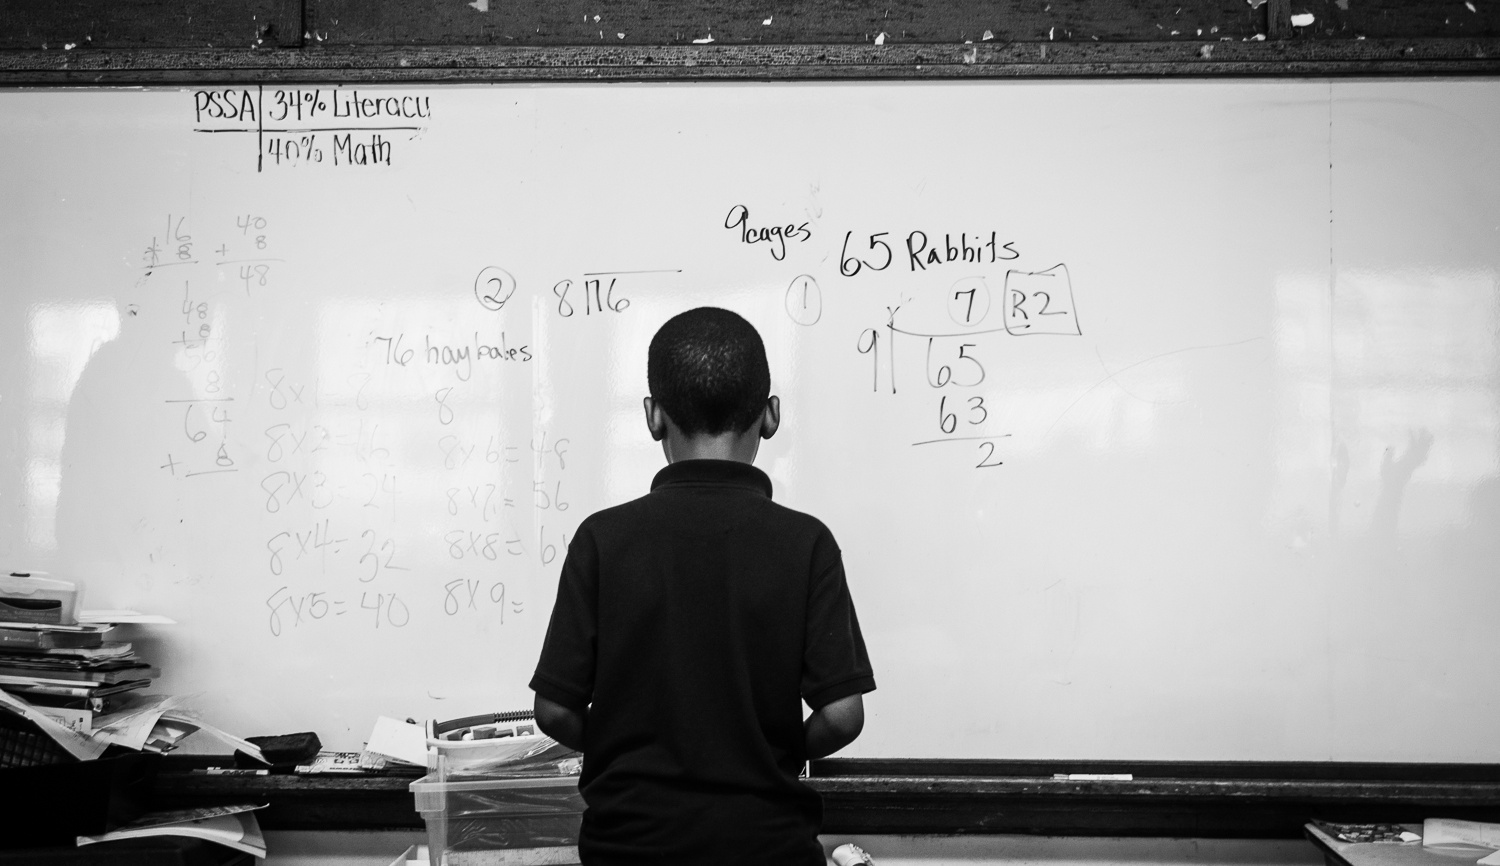 PSSA 34% Literacy
40% Math
9 cages
65 Rabbits
① 7 R2
9 65
63
2
② 8 76
76 hay bales
16
+ 8
40
+ 8
48
48
+ 8
56
8
64
+ 8
8x1 = 8
8x2=16
8x3=24
8x4=32
8x5=40
8
8x6=48
8x7=56
8x8=64
8x9=